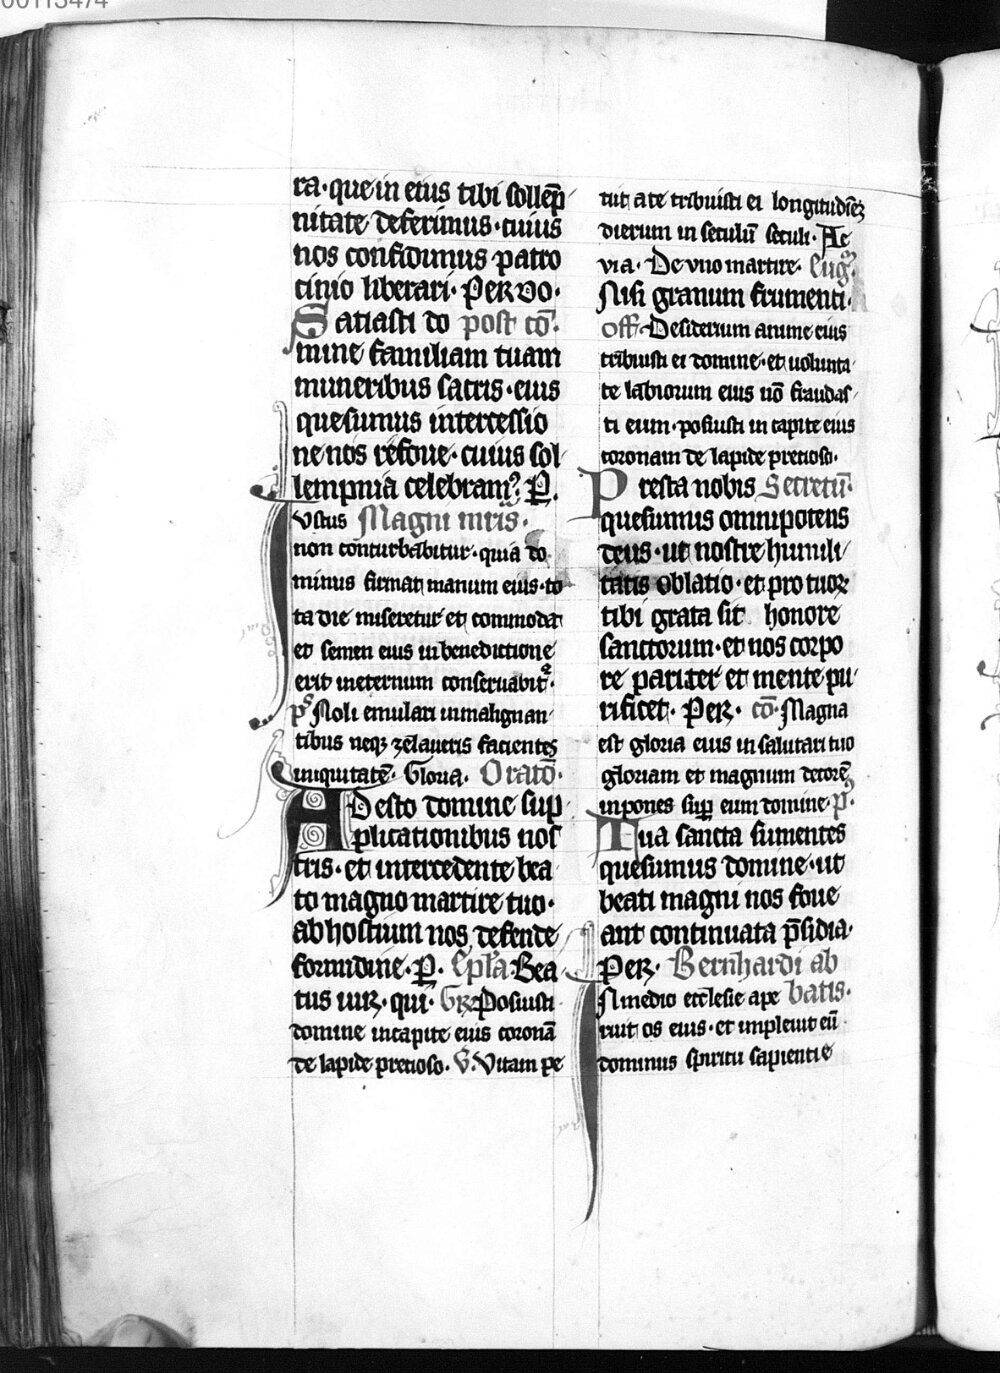 00113474
ra· que in eius tibi sollep̄
nitate deferimus· cuius
nos confidimus patro
cinio liberari· Per do·
Satiasti do post cō·
mine familiam tuam
muneribus sacris· eius
quesumus intercessio
ne nos refoue· cuius sol
lempnia celebram⁹· P.
Iustus Magni mris·
non conturbabitur· quia do
minus firmat manum eius· to
ta die miseretur et commodat
et semen eius in benedictione
erit in eternum conseruabit᷑·
p̄s Noli emulari in malignan
tibus neqꝫ zelaueris facientes
iniquitatē· Gloria· Oratō·
Adesto domine sup
plicationibus nos
tris· et intercedente bea
to magno martire tuo·
ab hostium nos defende
formidine· P. Ep̄la Bea
tus uir· qui· Gr̄ Posuisti
domine in capite eius coronā
de lapide precioso· V̄· Vitam pe
tiit a te tribuisti ei longitudīeꝫ
dierum in seculū seculi· Ae
via· De vno martire· Eug̅·
Nisi granum frumenti·
off̄· Desiderium anime eius
tribuisti ei domine· et volunta
te labiorum eius nō fraudas
ti eum· posuisti in capite eius
coronam de lapide precioso·
Presta nobis Secretū·
quesumus omnipotens
deus· ut nostre humili
tatis oblatio· et pro tuoꝝ
tibi grata sit honore
sanctorum· et nos corpo
re pariter et mente pu
rificet· Per· cō· Magna
est gloria eius in salutari tuo
gloriam et magnum decorē
inpones suꝑ eum domine· p̄⁹·
Tua sancta sumentes
quesumus domine· ut
beati magni nos foue
ant continuata p̄sidia·
Per· Bernhardi ab
In medio ecclesie ape batis·
ruit os eius· et impleuit eū
dominus spiritu sapientie